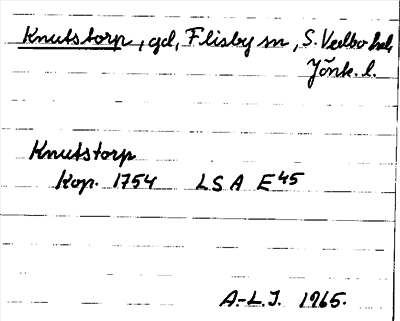 Knutstorp, gd, Flisby sn, S. Vedbo hd,
Jönk. l.
Knutstorp
Kop. 1754 LSA E45
A.-L.J. 1965.